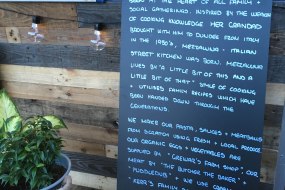 BORN AT THE HEART OF ALL FAMILY +
SOCIAL GATHERINGS. INSPIRED BY THE WEALTH
OF COOKING KNOWLEDGE HER GRANDPARENTS
BROUGHT WITH HIM TO DUNDEE FROM ITALY
IN THE 1950'S, MEZZALUNA - ITALIAN
STREET KITCHEN WAS BORN. MEZZALUNA
LIVES BY "A LITTLE BIT OF THIS AND A
LITTLE BIT OF THAT" STYLE OF COOKING
+ UTILISES FAMILY RECIPES WHICH HAVE
BEEN HANDED DOWN THROUGH THE
GENERATIONS.
WE MAKE OUR PASTA, SAUCES + MEATBALLS
FROM SCRATCH USING FRESH + LOCAL PRODUCE
OUR ORGANIC EGGS + VEGETABLES ARE
SUPPLIED BY "GREWAR'S FARM SHOP", OUR
MEAT BY "THE BUTCHER THE BAKER" +
"PUDDLEDUB" + WE USE
"KERR'S FAMILY